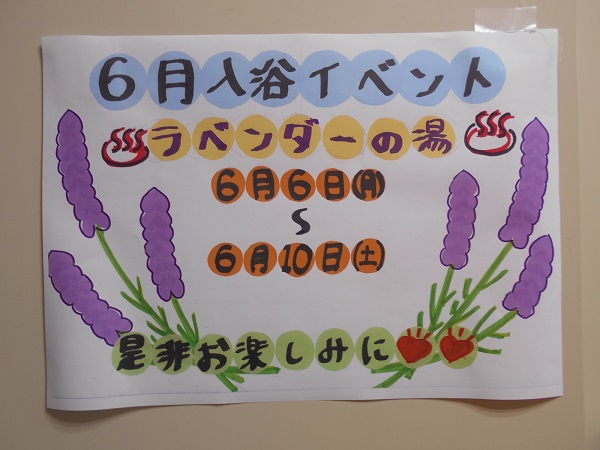 6月入浴イベント
ラベンダーの湯
6月6日(月)
〜
6月10日(土)
是非お楽しみに